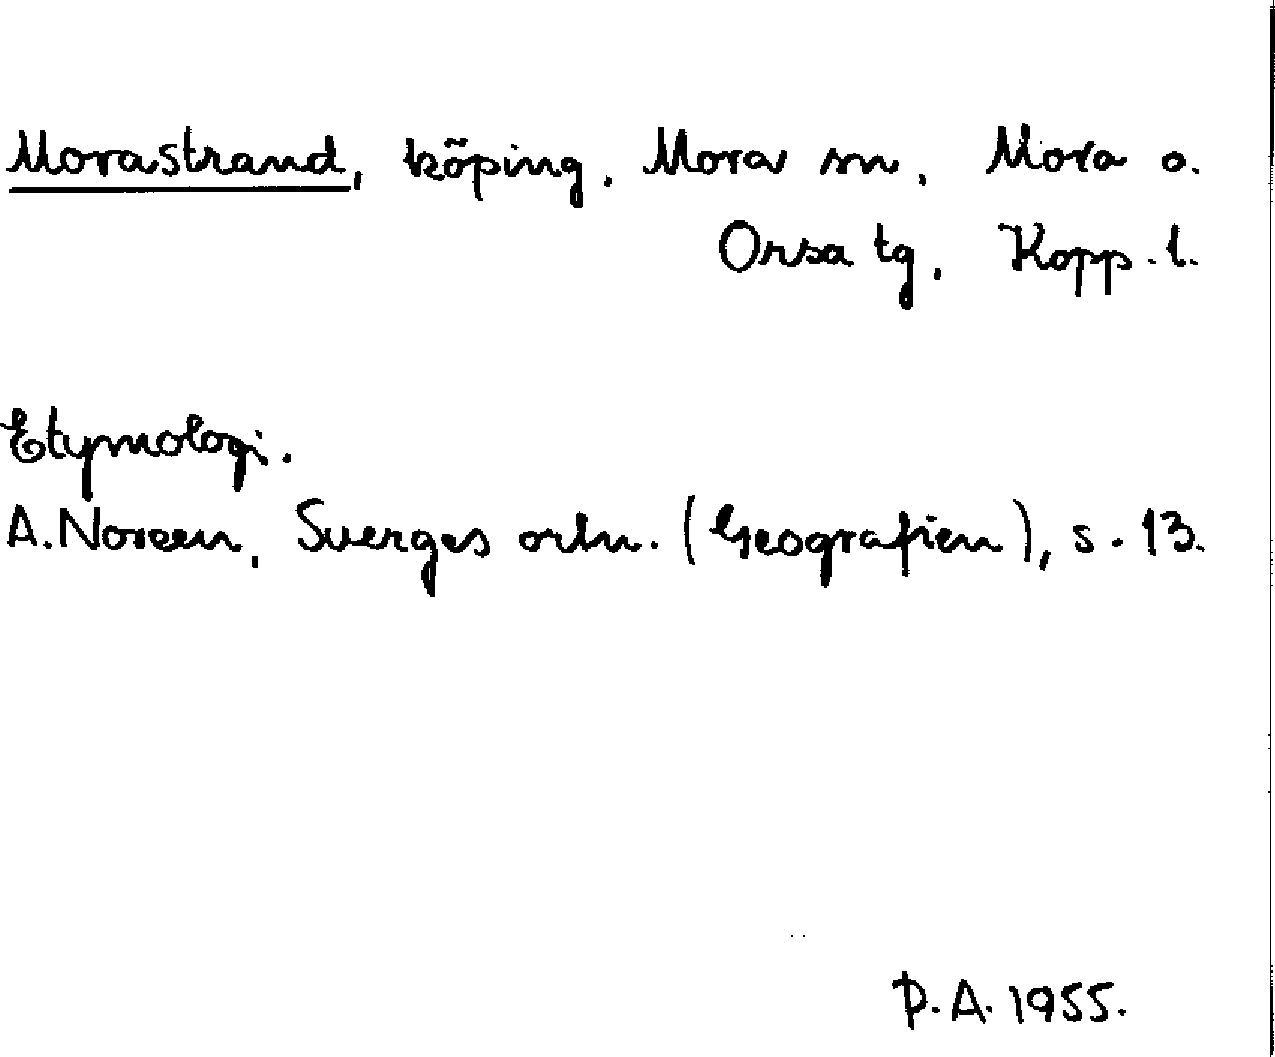 Morastrand, köping. Mora sn, Mora o.
Orsa tg, Kopp. l.
Etymologi.
A. Noreen, Sverges ortn. (Geografien), s. 13.
P. A. 1955.